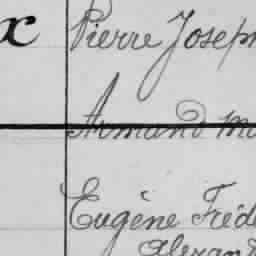 x Pierre Joseph
Armand Ma
Eugène Fréde
Alexand